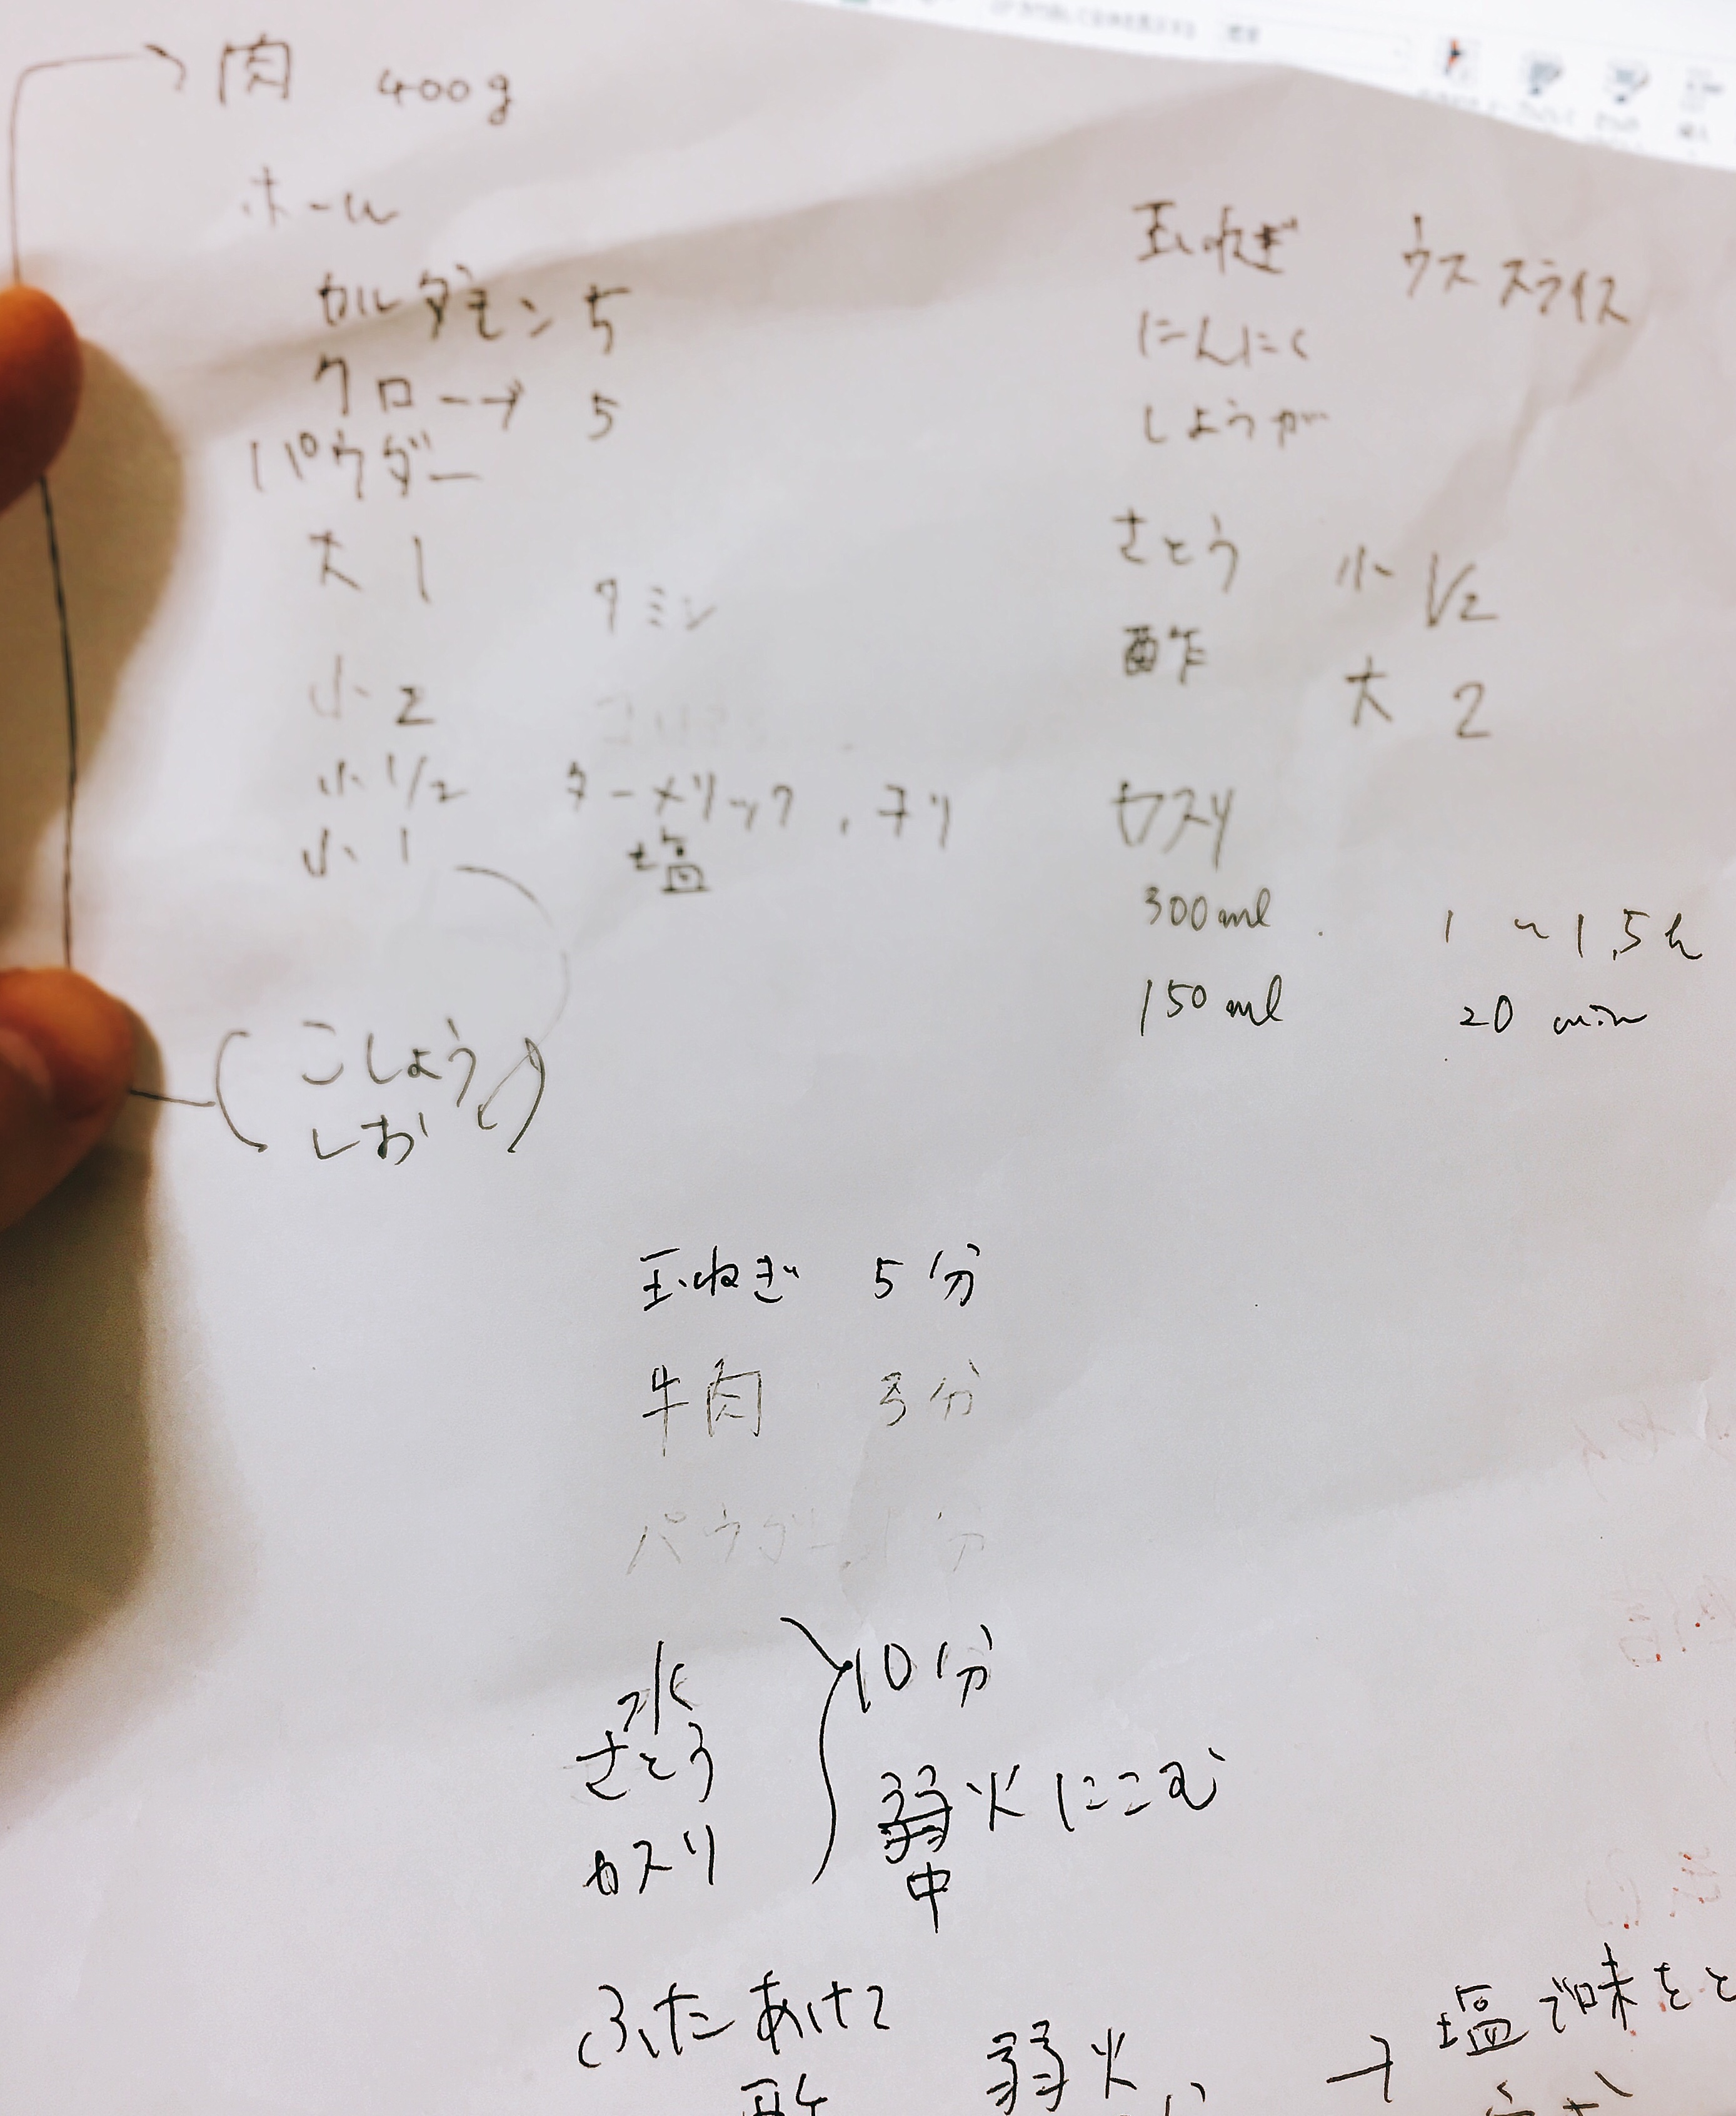 肉 400g
ホール
カルダモン 5
クローブ 5
パウダー
大 1 クミン
小 2
小 1/2 ターメリック、チリ
小 1 塩
(こしょう
しお)
玉ねぎ ウススライス
にんにく
しょうが
さとう 小 1/2
酢 大 2
カスリ
300ml 1〜1.5h
150ml 20 min
玉ねぎ 5分
牛肉 3分
パウダー 1分
水
さとう
カスリ
10分
弱火にこむ
中
ふたあけて
酢 弱火 → 塩で味をと